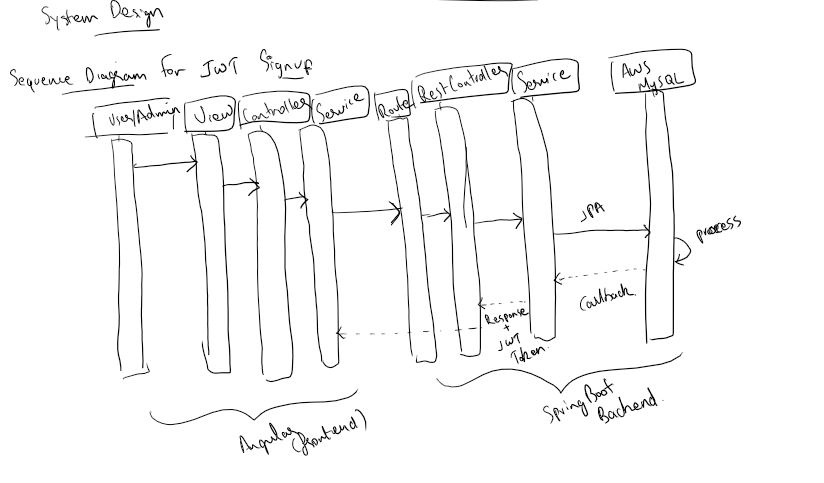 System Design
Sequence Diagram for JWT Signup
User/Admin
View
Controller
Service
Route
RestController
Service
AWS
MySQL
JPA
process
Callback
Response
+
JWT
Token
Angular
(frontend)
SpringBoot
Backend.